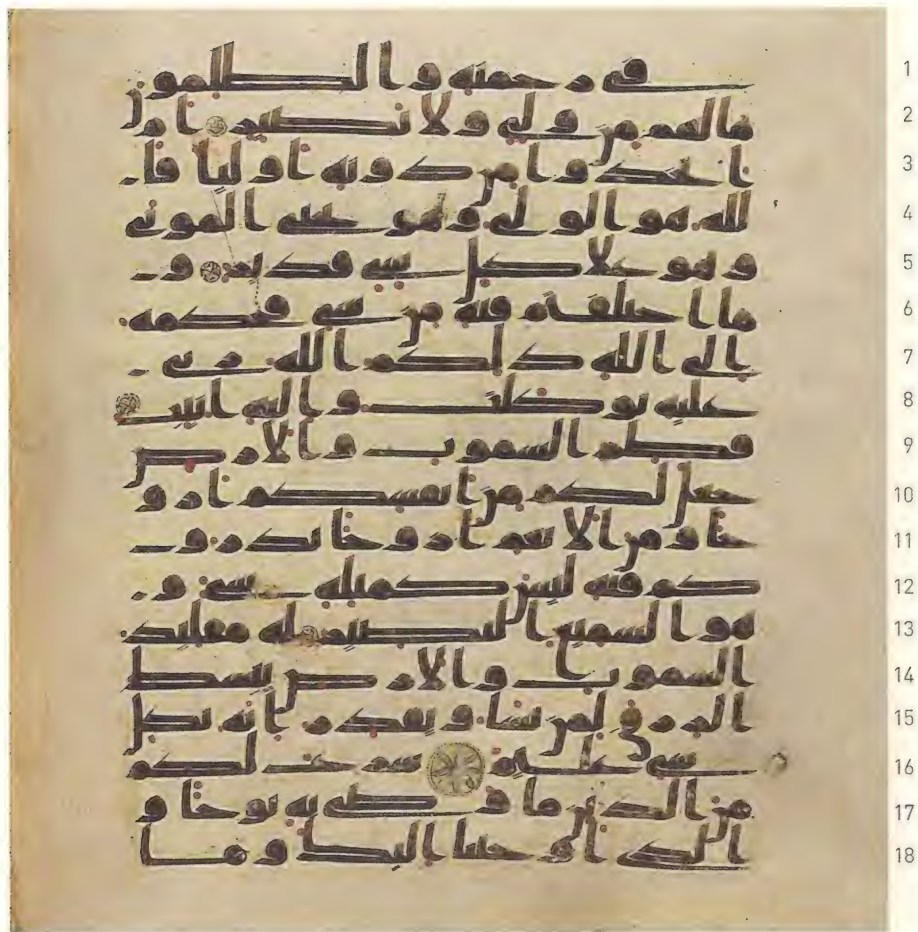 1 في رحمته والظلمون
2 ما لهم من ولي ولا نصير ام
3 اتخذوا من دونه اوليا فا
4 لله هو الولي وهو يحيى الموتى
5 وهو علا كل شي قدير و
6 ما اختلفتم فيه من شي فحكمه
7 الى الله ذلكم الله ربي
8 عليه توكلت واليه انيب
9 فطر السموت والارض
10 جعل لكم من انفسكم ازو
11 جا ومن الانعم ازوجا يذرو
12 كم فيه ليس كمثله شي و
13 هو السميع البصير له مقليد
14 السموت والارض يبسط
15 الرزق لمن يشا ويقدر انه بكل
16 شي عليم شرع لكم
17 من الدين ما وصى به نوحا و
18 الذي اوحينا اليك وما